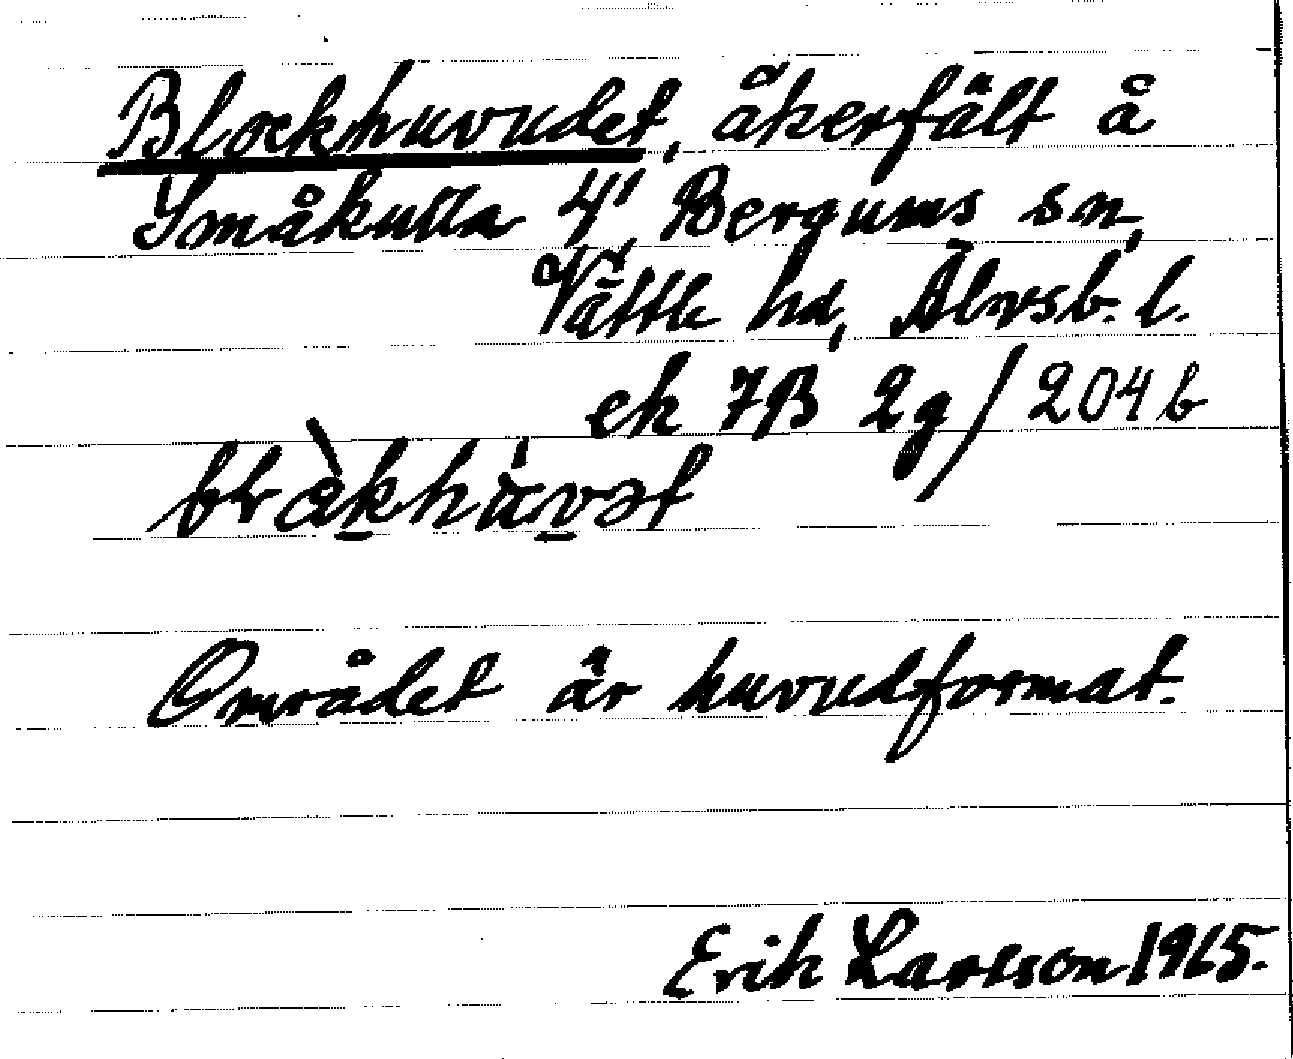 Blockhuvudet, åkerfält å
Småkulla 4' Bergums sn,
Vättle hd, Älvsb. l.
ek 7B 2g/204b
blåkhuvət
Området är huvudformat.
Erik Larsson 1965.